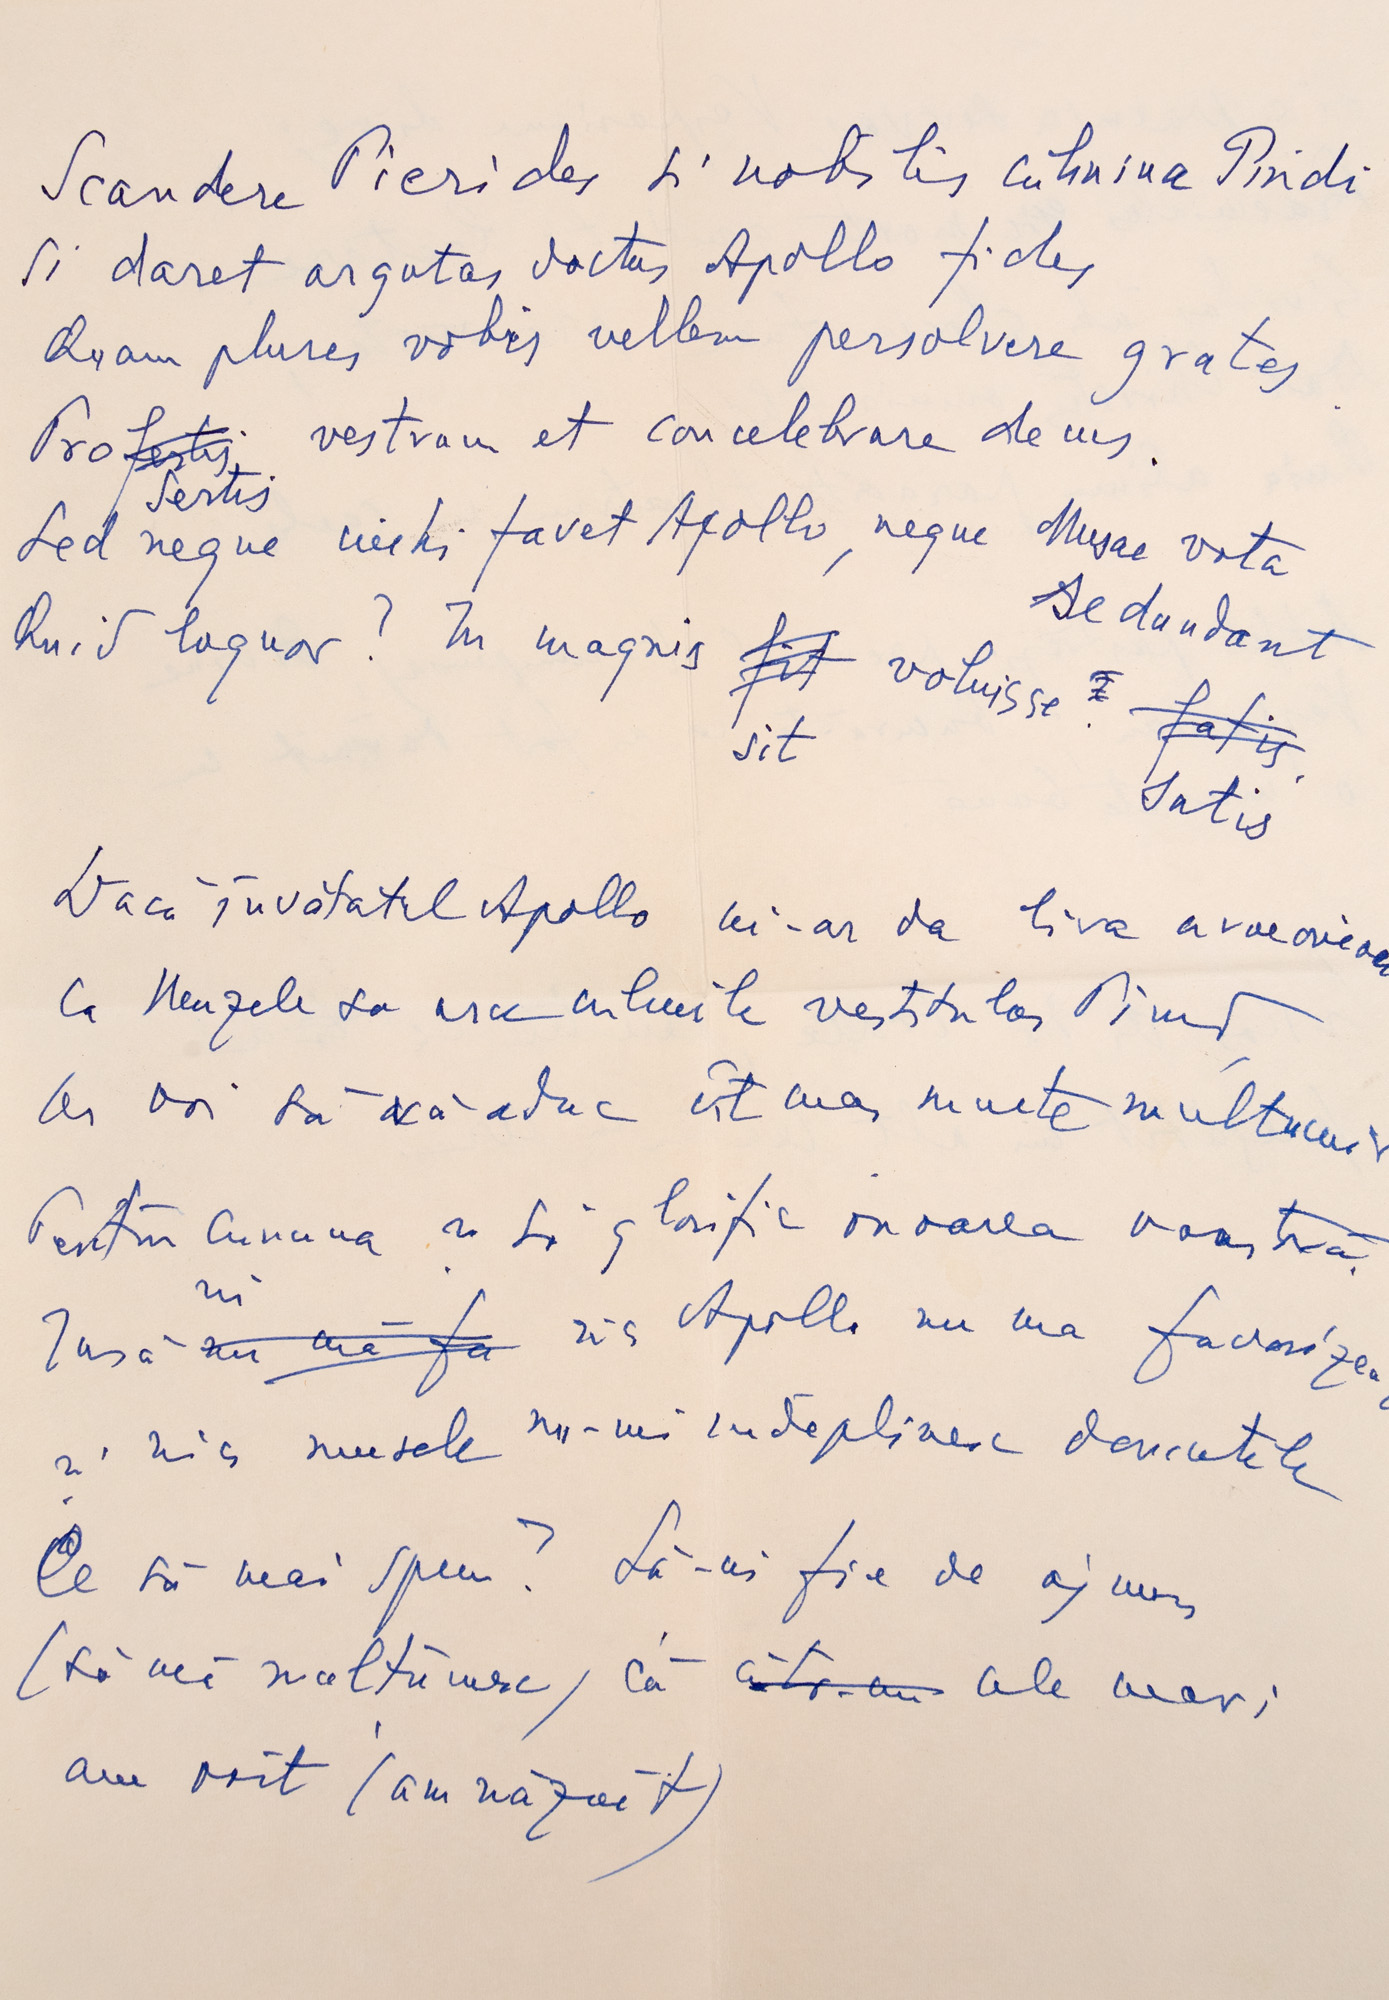 Scandere Pierides si nobilis culmina Pindi
Si daret argutas doctus Apollo fides
Quam plures vobis vellem persolvere grates
Pro festis vestrum et concelebrare decus.
sertis
Sed neque mihi favet Apollo, neque Musae vota
secundant
Quid loquor? In magnis fit voluisse fatis.
sit satis
Dacă învătatul Apollo mi-ar da lira armonioasă
Ca Muzele să urce culmile vestitului Pind,
As voi să vă aduc cît mai multe multumiri
Pentru cununa si să glorific onoarea voastră.
ni
Insă nu mă fa nici Apollo nu ma favorizează
si nici musele nu-mi indeplinesc dorintele
Ce să mai spun? Să-mi fie de ajuns
(să mă multumesc) că cele mari
am voit (am năzuit)